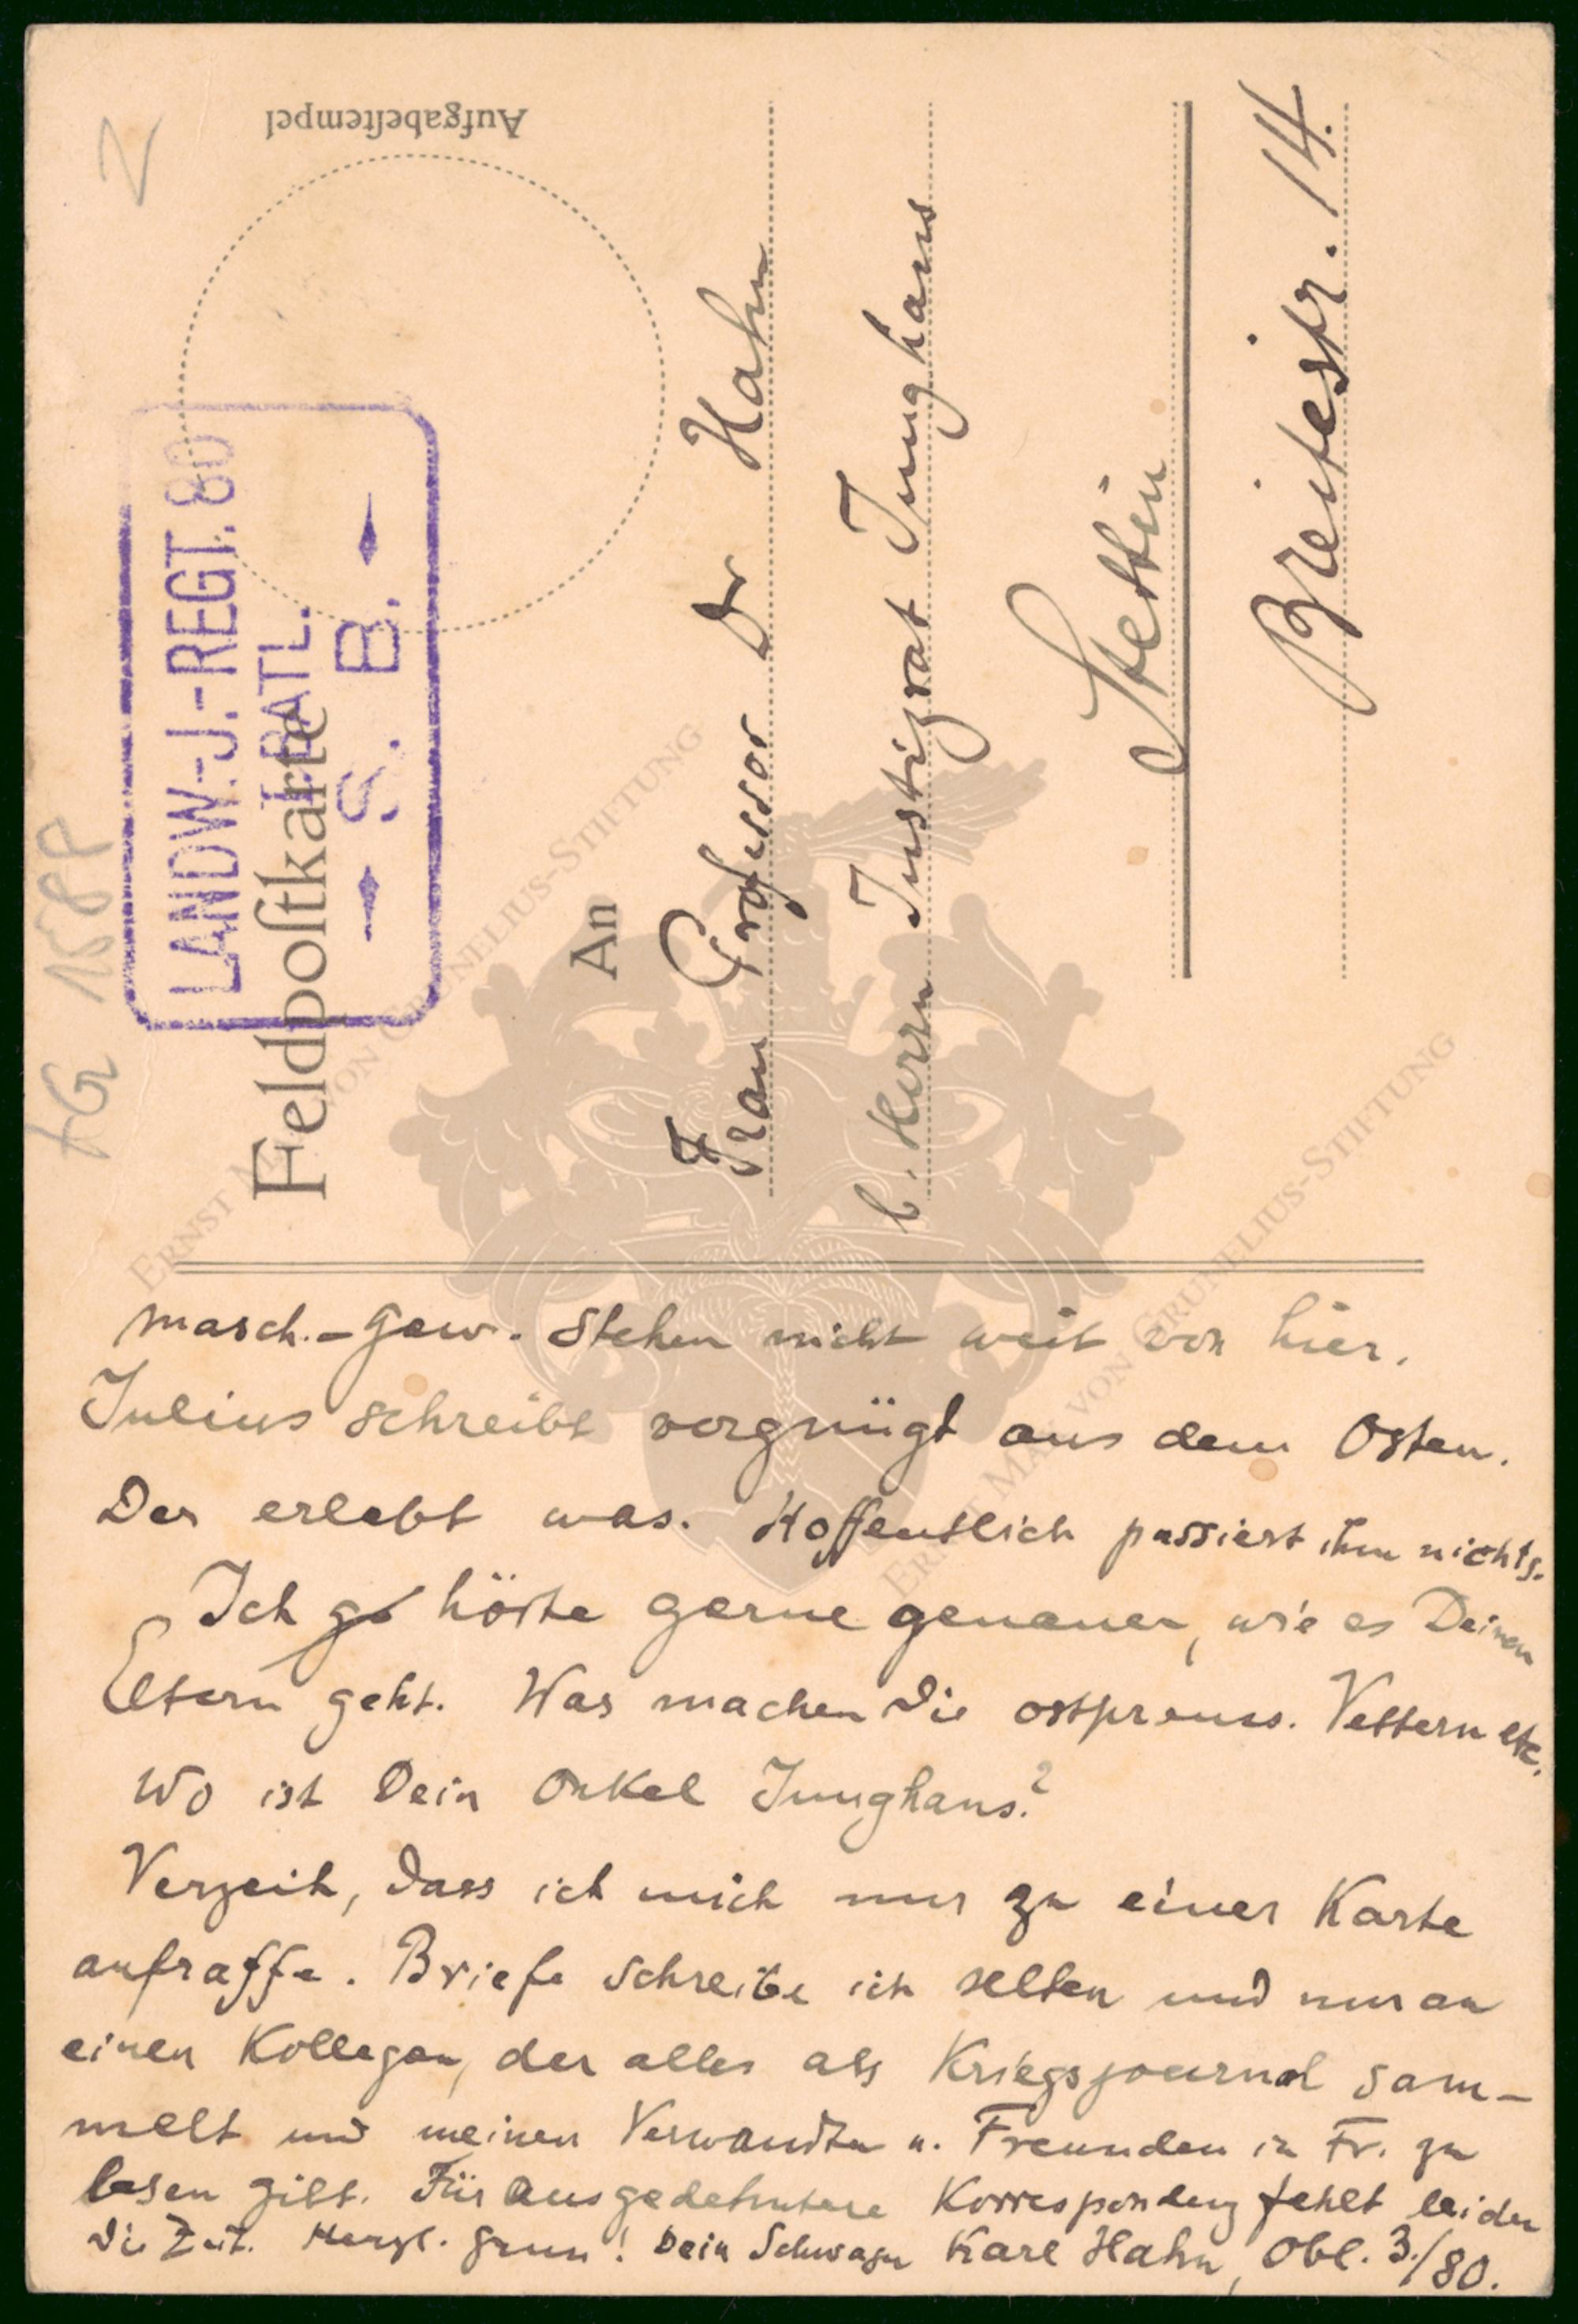 Aufgabestempel
Z
LANDW.-J.-REGT. 80
I. BATL.
S. B.
Feldpostkarte
An
Frau Professor Dr Hahn
b. Herrn Justizrat Junghans
Stettin
Breitestr. 14.
masch.-Gew. stehen nicht weit von hier.
Julius schreibt vergnügt aus dem Osten.
Der erlebt was. Hoffentlich passiert ihm nichts.
Ich hörte gerne genauer, wie es Deinen
Eltern geht. Was machen die ostpreuss. Vettern etc.
Wo ist Dein Onkel Junghans?
Verzeih, dass ich mich nur zu einer Karte
aufraffe. Briefe schreibe ich selten und nur an
einen Kollegen, der alles als Kriegsjournal sam-
melt und meinen Verwandten u. Freunden in Fr. zu
lesen gibt. Für ausgedehntere Korrespondenz fehlt leider
die Zeit. Herzl. Gruss! Dein Schwager Karl Hahn, Obl. 3./80.
ERNST MAX VON GRUNELIUS-STIFTUNG
ERNST MAX VON GRUNELIUS-STIFTUNG